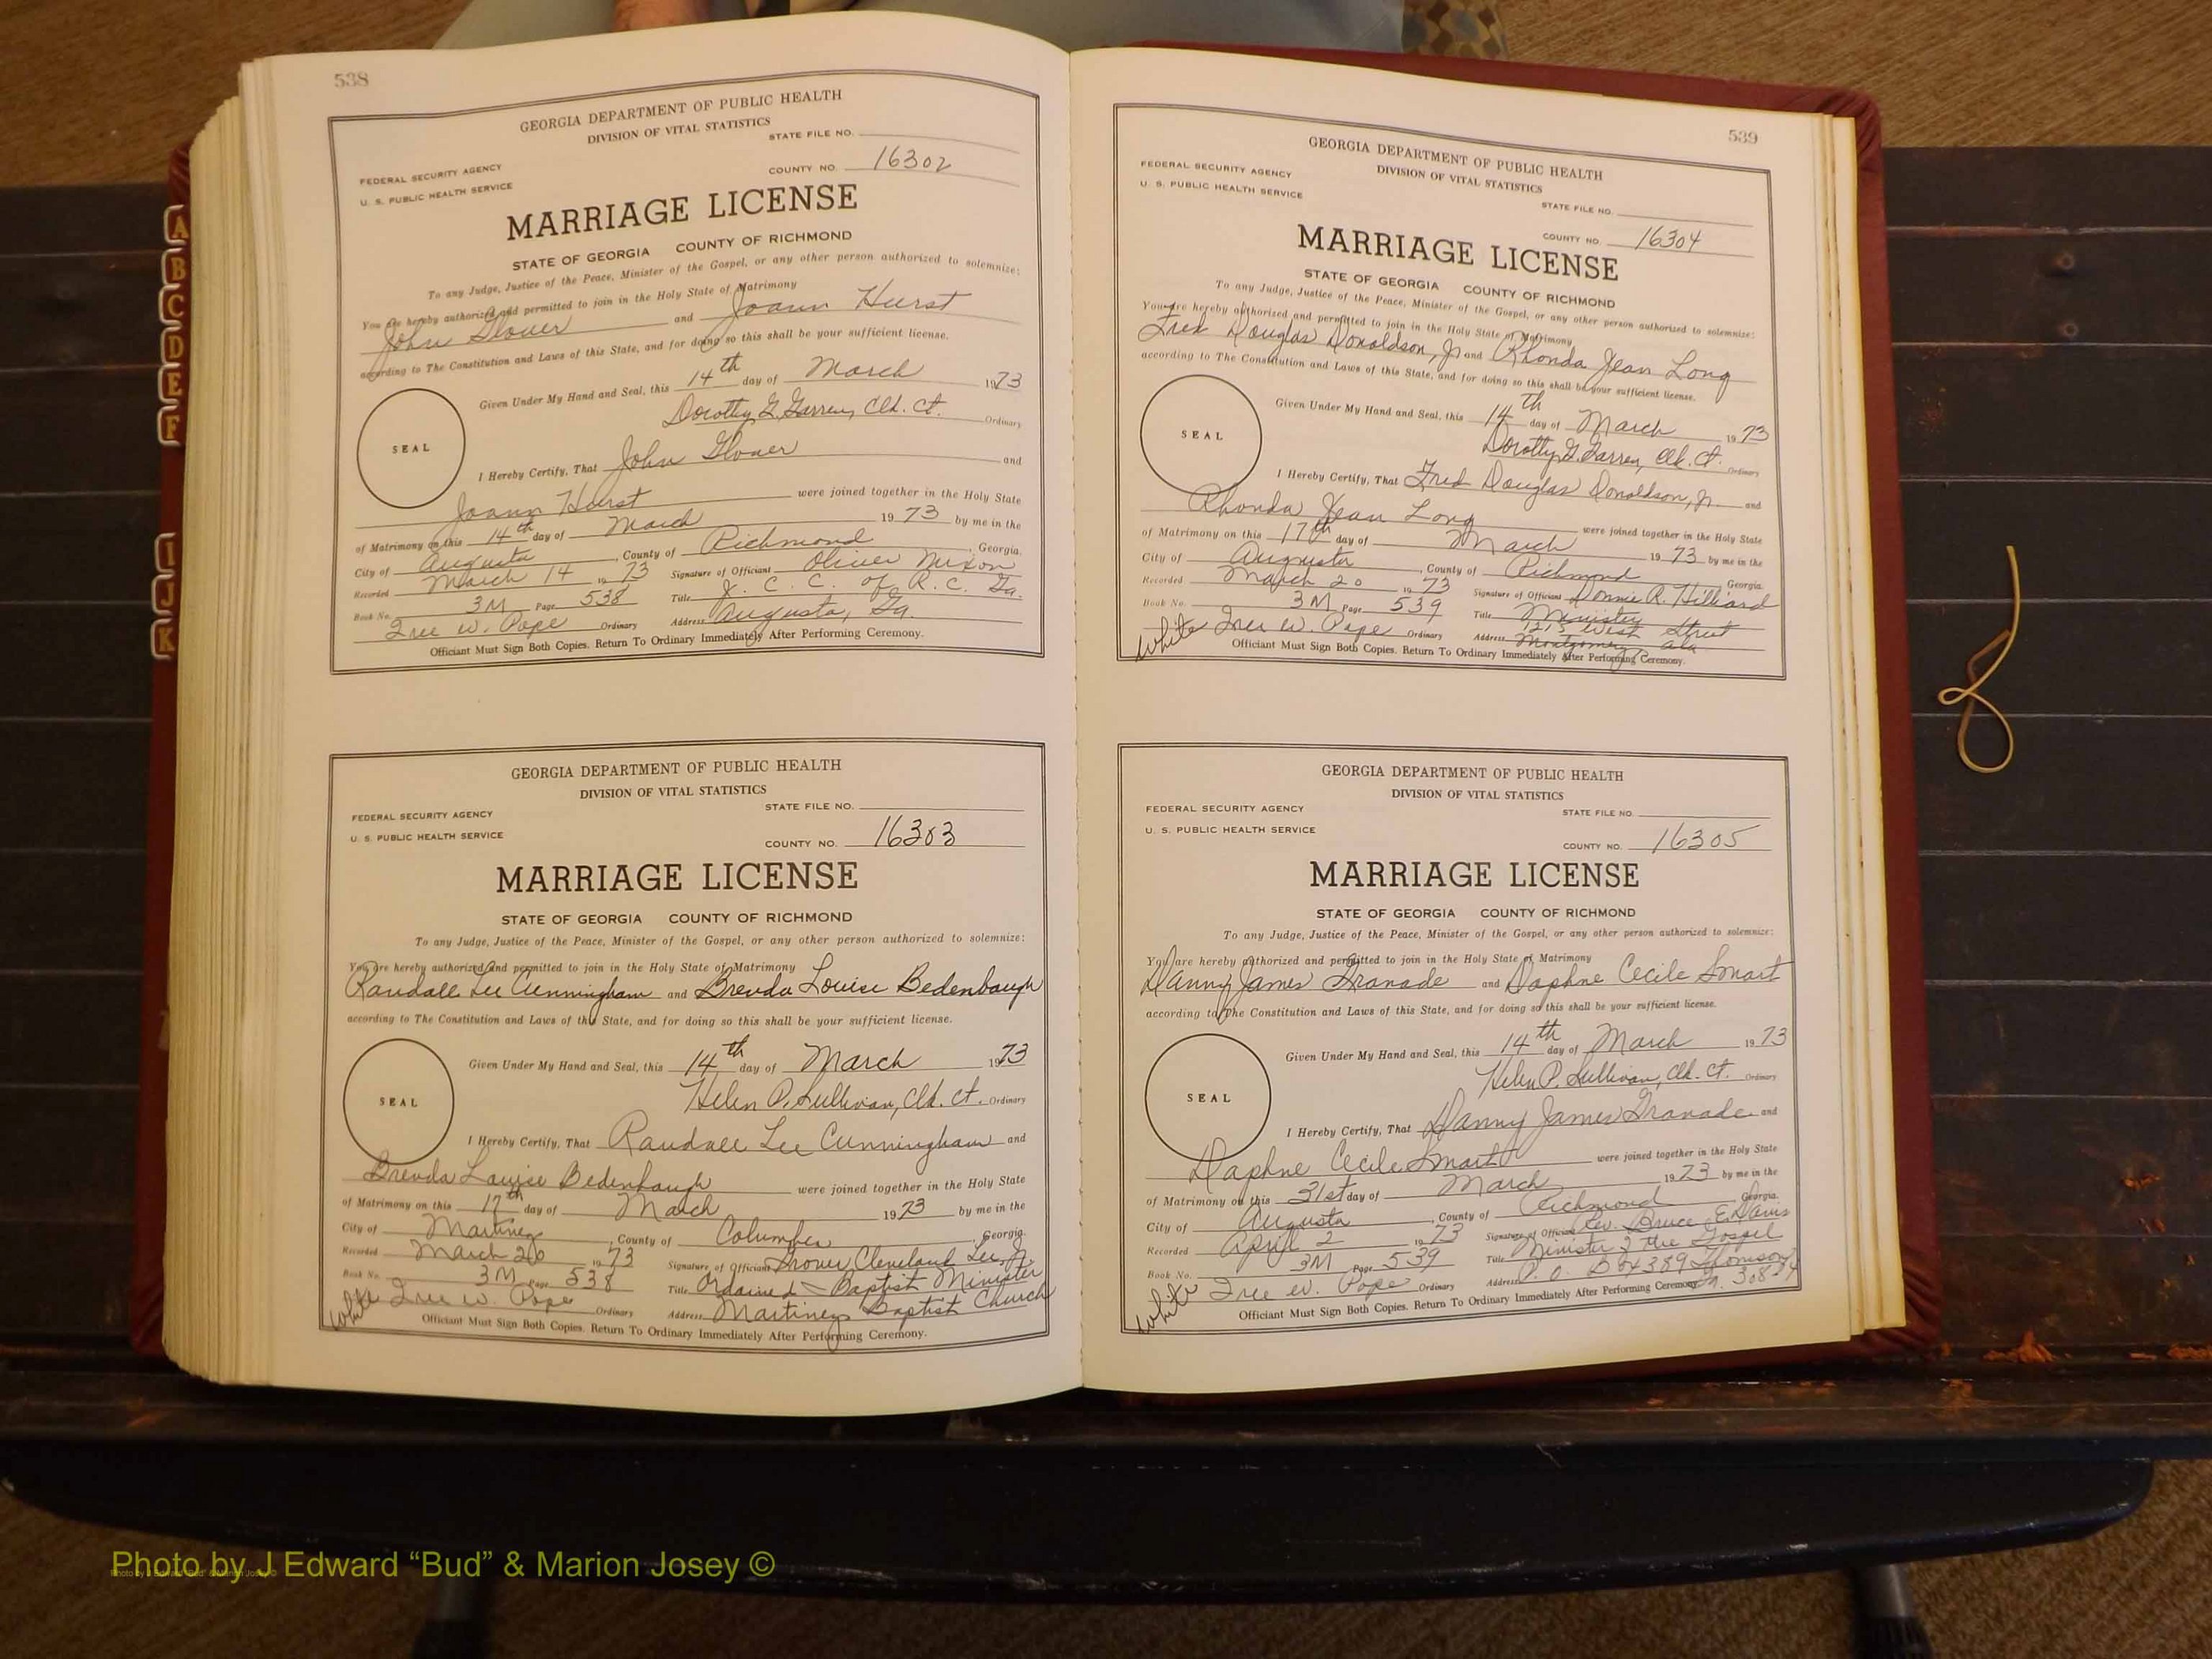 538
GEORGIA DEPARTMENT OF PUBLIC HEALTH
DIVISION OF VITAL STATISTICS
STATE FILE NO.
FEDERAL SECURITY AGENCY
U. S. PUBLIC HEALTH SERVICE
COUNTY NO. 16302
MARRIAGE LICENSE
STATE OF GEORGIA COUNTY OF RICHMOND
To any Judge, Justice of the Peace, Minister of the Gospel, or any other person authorized to solemnize:
You are hereby authorized and permitted to join in the Holy State of Matrimony
John Glover and Joann Hurst
according to The Constitution and Laws of this State, and for doing so this shall be your sufficient license.
Given Under My Hand and Seal, this 14th day of March 1973
Dorothy G. Garren, Clk. Ct. Ordinary
SEAL
I Hereby Certify, That John Glover and
Joann Hurst were joined together in the Holy State
of Matrimony on this 14th day of March 1973 by me in the
City of Augusta, County of Richmond, Georgia.
Recorded March 14 1973 Signature of Official Oliver Nixon
Book No. 3M Page 538 Title J. C. C. of R. C. Ga.
Inee W. Pope Ordinary Address Augusta, Ga.
Officiant Must Sign Both Copies. Return To Ordinary Immediately After Performing Ceremony.
GEORGIA DEPARTMENT OF PUBLIC HEALTH
DIVISION OF VITAL STATISTICS
STATE FILE NO.
FEDERAL SECURITY AGENCY
U. S. PUBLIC HEALTH SERVICE
COUNTY NO. 16303
MARRIAGE LICENSE
STATE OF GEORGIA COUNTY OF RICHMOND
To any Judge, Justice of the Peace, Minister of the Gospel, or any other person authorized to solemnize:
You are hereby authorized and permitted to join in the Holy State of Matrimony
Randall Lee Cunningham and Brenda Louise Bedenbaugh
according to The Constitution and Laws of this State, and for doing so this shall be your sufficient license.
Given Under My Hand and Seal, this 14th day of March 1973
Helen P. Sullivan, Clk. Ct. Ordinary
SEAL
I Hereby Certify, That Randall Lee Cunningham and
Brenda Louise Bedenbaugh were joined together in the Holy State
of Matrimony on this 17th day of March 1973 by me in the
City of Martinez, County of Columbia, Georgia.
Recorded March 20 1973 Signature of Official Grover Cleveland Lee, Jr.
Book No. 3M Page 538 Title Ordained Baptist Minister
White Inee W. Pope Ordinary Address Martinez Baptist Church
Officiant Must Sign Both Copies. Return To Ordinary Immediately After Performing Ceremony.
539
GEORGIA DEPARTMENT OF PUBLIC HEALTH
DIVISION OF VITAL STATISTICS
FEDERAL SECURITY AGENCY
U. S. PUBLIC HEALTH SERVICE
STATE FILE NO.
COUNTY NO. 16304
MARRIAGE LICENSE
STATE OF GEORGIA COUNTY OF RICHMOND
To any Judge, Justice of the Peace, Minister of the Gospel, or any other person authorized to solemnize:
You are hereby authorized and permitted to join in the Holy State of Matrimony
Fred Douglas Donaldson, Jr. and Rhonda Jean Long
according to The Constitution and Laws of this State, and for doing so this shall be your sufficient license.
Given Under My Hand and Seal, this 14th day of March 1973
Dorothy G. Garren, Clk. Ct. Ordinary
SEAL
I Hereby Certify, That Fred Douglas Donaldson, Jr. and
Rhonda Jean Long were joined together in the Holy State
of Matrimony on this 17th day of March 1973 by me in the
City of Augusta, County of Richmond Georgia.
Recorded March 20 1973 Signature of Official Donnie R. Hilliard
Book No. 3M Page 539 Title Minister
White Inee W. Pope Ordinary Address 1215 West Street
Montgomery, Ala
Officiant Must Sign Both Copies. Return To Ordinary Immediately After Performing Ceremony.
GEORGIA DEPARTMENT OF PUBLIC HEALTH
DIVISION OF VITAL STATISTICS
FEDERAL SECURITY AGENCY
U. S. PUBLIC HEALTH SERVICE
STATE FILE NO.
COUNTY NO. 16305
MARRIAGE LICENSE
STATE OF GEORGIA COUNTY OF RICHMOND
To any Judge, Justice of the Peace, Minister of the Gospel, or any other person authorized to solemnize:
You are hereby authorized and permitted to join in the Holy State of Matrimony
Danny James Granade and Daphne Cecile Smart
according to The Constitution and Laws of this State, and for doing so this shall be your sufficient license.
Given Under My Hand and Seal, this 14th day of March 1973
Helen P. Sullivan, Clk. Ct. Ordinary
SEAL
I Hereby Certify, That Danny James Granade and
Daphne Cecile Smart were joined together in the Holy State
of Matrimony on this 31st day of March 1973 by me in the
City of Augusta, County of Richmond Georgia.
Recorded April 2 1973 Signature of Official Rev. Bruce E. Davis
Book No. 3M Page 539 Title Minister of the Gospel
White Inee W. Pope Ordinary Address P. O. Box 389 Thomson
Ga. 30824
Officiant Must Sign Both Copies. Return To Ordinary Immediately After Performing Ceremony.
A
B
C
D
E
F
I
J
K
Photo by J Edward “Bud” & Marion Josey ©
Photo by J Edward “Bud” & Marion Josey ©